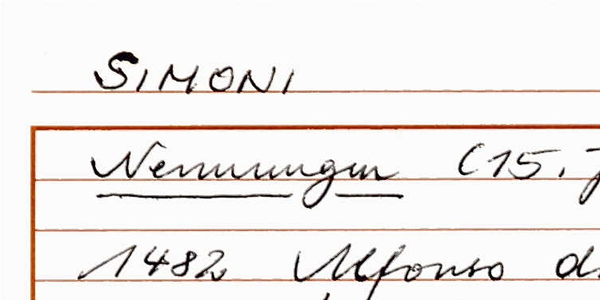 SIMONI
Nennungen (15. J
1482 Alfonso d